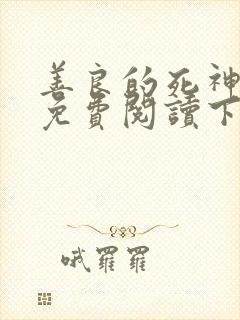 善良的死神
免費閱讀下
哦羅羅